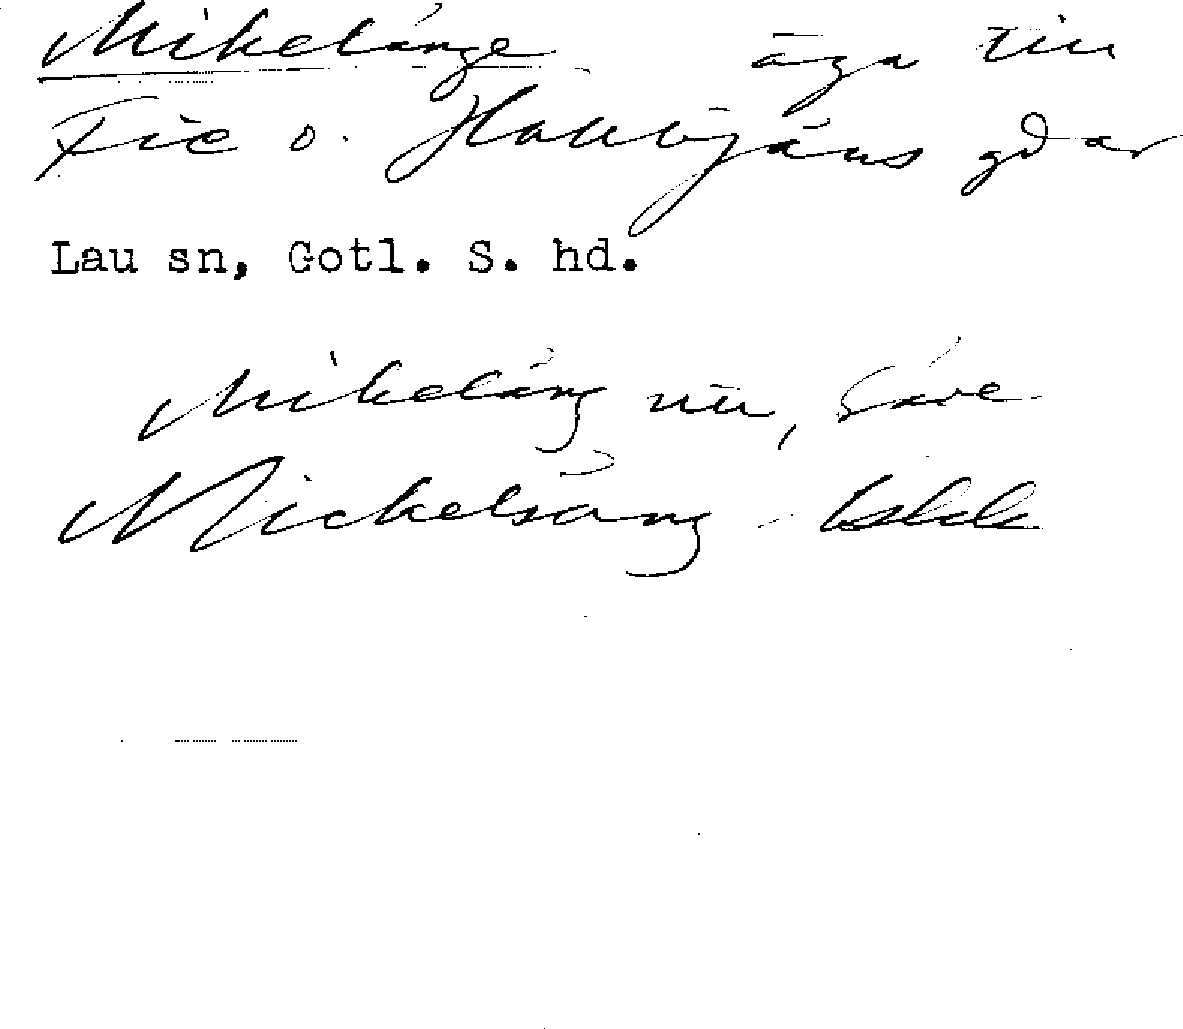 Mikelänge äga till
Fie o. Hallbjäns gdar
Lau sn, Gotl. S. hd.
Mikeläng Säve
Mickelsäng